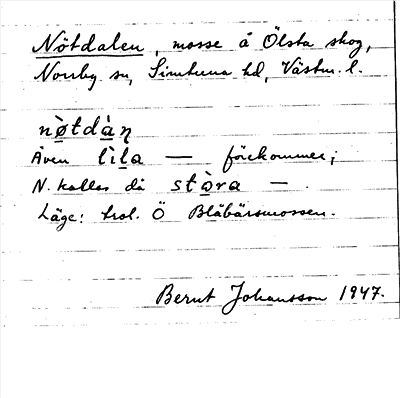 Nötdalen, mosse å Ölsta skog,
Norrby sn, Simtuna hd, Västm. l.
nø̀tdàn̩
Även lìla — förekommer;
N. kallas då stòra —.
Läge: trol. Ö Blåbärsmossen.
Bernt Johansson 1947.